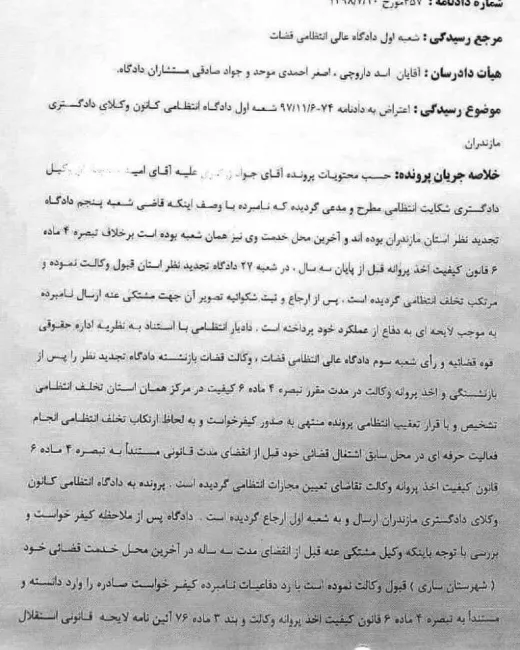 شماره دادنامه : ۲۵۷مورخ ۱۳۹۸/۷/۱۰
مرجع رسیدگی : شعبه اول دادگاه عالی انتظامی قضات
هیأت دادرسان : آقایان اسد داروچی ، اصغر احمدی موحد و جواد صادقی مستشاران دادگاه.
موضوع رسیدگی : اعتراض به دادنامه ۷۴-۹۷/۱۱/۶ شعبه اول دادگاه انتظامی کانون وکلای دادگستری
مازندران
خلاصه جریان پرونده: حسب محتویات پرونده آقای جواد علیه آقای امید وکیل
دادگستری شکایت انتظامی مطرح و مدعی گردیده که نامبرده با وصف اینکه قاضی شعبه پنجم دادگاه
تجدید نظر استان مازندران بوده اند و آخرین محل خدمت وی نیز همان شعبه بوده است برخلاف تبصره ۴ ماده
۶ قانون کیفیت اخذ پروانه قبل از پایان سه سال ، در شعبه ۲۷ دادگاه تجدید نظر استان قبول وکالت نموده و
مرتکب تخلف انتظامی گردیده است . پس از ارجاع و ثبت شکوائیه تصویر آن جهت مشتکی عنه ارسال نامبرده
به موجب لایحه ای به دفاع از عملکرد خود پرداخته است . دادیار انتظامی با استناد به نظریه اداره حقوقی
قوه قضائیه و رأی شعبه سوم دادگاه عالی انتظامی قضات ، وکالت قضات بازنشسته دادگاه تجدید نظر را پس از
بازنشستگی و اخذ پروانه وکالت در مدت مقرر تبصره ۴ ماده ۶ کیفیت در مرکز همان استان تخلف انتظامی
تشخیص و با قرار تعقیب انتظامی پرونده منتهی به صدور کیفرخواست و به لحاظ ارتکاب تخلف انتظامی انجام
فعالیت حرفه ای در محل سابق اشتغال قضائی خود قبل از انقضای مدت قانونی مستنداً به تبصره ۴ ماده ۶
قانون کیفیت اخذ پروانه وکالت تقاضای تعیین مجازات انتظامی گردیده است . پرونده به دادگاه انتظامی کانون
وکلای دادگستری مازندران ارسال و به شعبه اول ارجاع گردیده است . دادگاه پس از ملاحظه کیفر خواست و
بررسی با توجه باینکه وکیل مشتکی عنه قبل از انقضای مدت سه ساله در آخرین محل خدمت قضائی خود
( شهرستان ساری ) قبول وکالت نموده است با رد دفاعیات نامبرده کیفر خواست صادره را وارد دانسته و
مستنداً به تبصره ۴ ماده ۶ قانون کیفیت اخذ پروانه وکالت و بند ۳ ماده ۷۶ آئین نامه لایحه قانونی استقلال